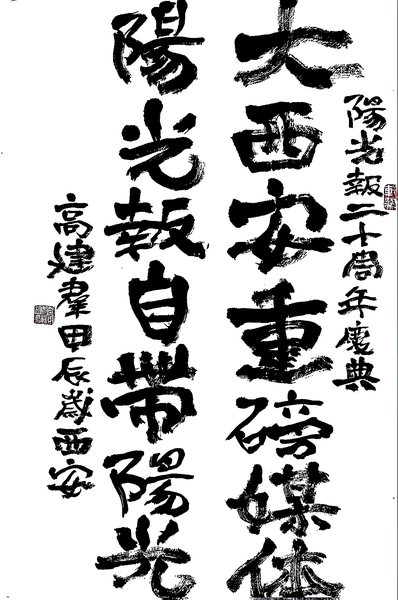 陽光報二十周年慶典
大西安重磅媒体
陽光報自带陽光
高建羣甲辰歲西安